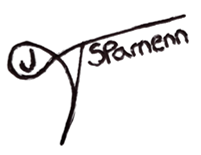 J Sparnenn